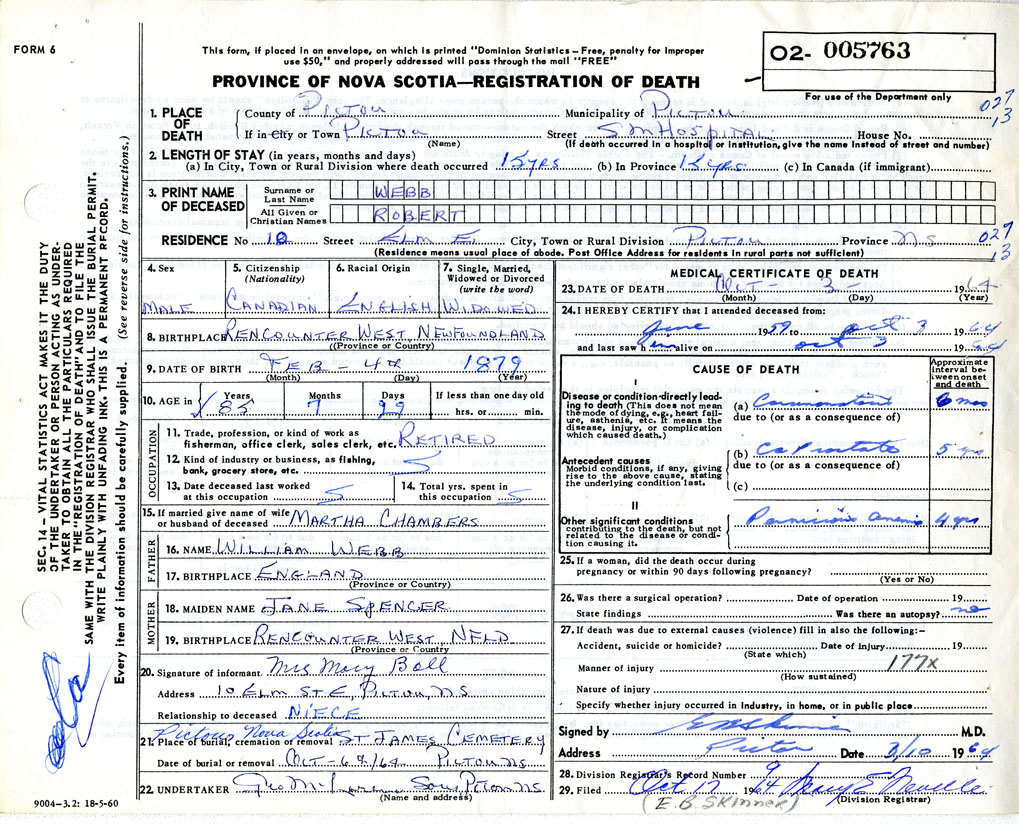 FORM 6
This form, if placed in an envelope, on which is printed "Dominion Statistics – Free, penalty for improper
use $50," and properly addressed will pass through the mail "FREE"
PROVINCE OF NOVA SCOTIA—REGISTRATION OF DEATH
02- 005763
For use of the Department only
027
13
SEC. 14 – VITAL STATISTICS ACT MAKES IT THE DUTY
OF THE UNDERTAKER OR PERSON ACTING AS UNDER-
TAKER TO OBTAIN ALL THE PARTICULARS REQUIRED
IN THE "REGISTRATION OF DEATH" AND TO FILE THE
SAME WITH THE DIVISION REGISTRAR WHO SHALL ISSUE THE BURIAL PERMIT.
WRITE PLAINLY WITH UNFADING INK. THIS IS A PERMANENT RECORD.
Every item of information should be carefully supplied. (See reverse side for instructions.)
1. PLACE OF DEATH
County of PICTOU Municipality of PICTOU
If in City or Town PICTOU Street SM HOSPITAL House No.
(Name) (If death occurred in a hospital or institution, give the name instead of street and number)
2. LENGTH OF STAY (in years, months and days)
(a) In City, Town or Rural Division where death occurred 15 YRS (b) In Province 15 YRS (c) In Canada (if immigrant)
3. PRINT NAME OF DECEASED
Surname or Last Name WEBB
All Given or Christian Names ROBERT
RESIDENCE No 10 Street ELM E. City, Town or Rural Division PICTOU Province NS
027
13
(Residence means usual place of abode. Post Office Address for residents in rural parts not sufficient)
4. Sex 5. Citizenship (Nationality) 6. Racial Origin 7. Single, Married, Widowed or Divorced (write the word)
MALE CANADIAN ENGLISH WIDOWED
8. BIRTHPLACE RENCOUNTER WEST NEWFOUNDLAND
(Province or Country)
9. DATE OF BIRTH FEB - 4TH 1879
(Month) (Day) (Year)
10. AGE in Years Months Days If less than one day old
85 7 29 hrs. or min.
OCCUPATION
11. Trade, profession, or kind of work as
fisherman, office clerk, sales clerk, etc. RETIRED
12. Kind of industry or business, as fishing,
bank, grocery store, etc.
13. Date deceased last worked
at this occupation
14. Total yrs. spent in
this occupation
15. If married give name of wife
or husband of deceased MARTHA CHAMBERS
FATHER
16. NAME WILLIAM WEBB
17. BIRTHPLACE ENGLAND
(Province or Country)
MOTHER
18. MAIDEN NAME JANE SPENCER
19. BIRTHPLACE RENCOUNTER WEST, NFLD
(Province or Country
20. Signature of informant. Mrs Mary Ball
Address 10 ELM ST. E, PICTOU, NS
Relationship to deceased NIECE
Pictou Nova Scotia
21. Place of burial, cremation or removal ST JAMES CEMETERY
Date of burial or removal OCT - 6TH/64 PICTOU NS
22. UNDERTAKER Sons Pictou NS.
(Name and address)
9004–3.2: 18-5-60
MEDICAL CERTIFICATE OF DEATH
23. DATE OF DEATH Oct - 3 - 1964
(Month) (Day) (Year)
24. I HEREBY CERTIFY that I attended deceased from:
June 1959 to Oct 3 1964
and last saw him alive on Oct 3 1964
CAUSE OF DEATH
Approximate interval between onset and death
I
Disease or condition directly lead-
ing to death (This does not mean
the mode of dying, e.g., heart fail-
ure, asthenia, etc. It means the
disease, injury, or complication
which caused death.)
(a) 6 mos
due to (or as a consequence of)
Antecedent causes
Morbid conditions, if any, giving
rise to the above cause, stating
the underlying condition last.
(b) Ca Prostate 5 yrs
due to (or as a consequence of)
(c)
II
Other significant conditions
contributing to the death, but not
related to the disease or condi-
tion causing it.
Pernicious anemia 4 yrs
25. If a woman, did the death occur during
pregnancy or within 90 days following pregnancy?
(Yes or No)
26. Was there a surgical operation? Date of operation 19
State findings Was there an autopsy? no
27. If death was due to external causes (violence) fill in also the following:–
Accident, suicide or homicide? Date of injury 19
(State which)
Manner of injury 177X
(How sustained)
Nature of injury
Specify whether injury occurred in industry, in home, or in public place
Signed by EB Skinner M.D.
Address Pictou Date 3/10 1964
28. Division Registrar's Record Number 9
29. Filed Oct 17 1964
(Division Registrar)
(E. B. SKINNER)